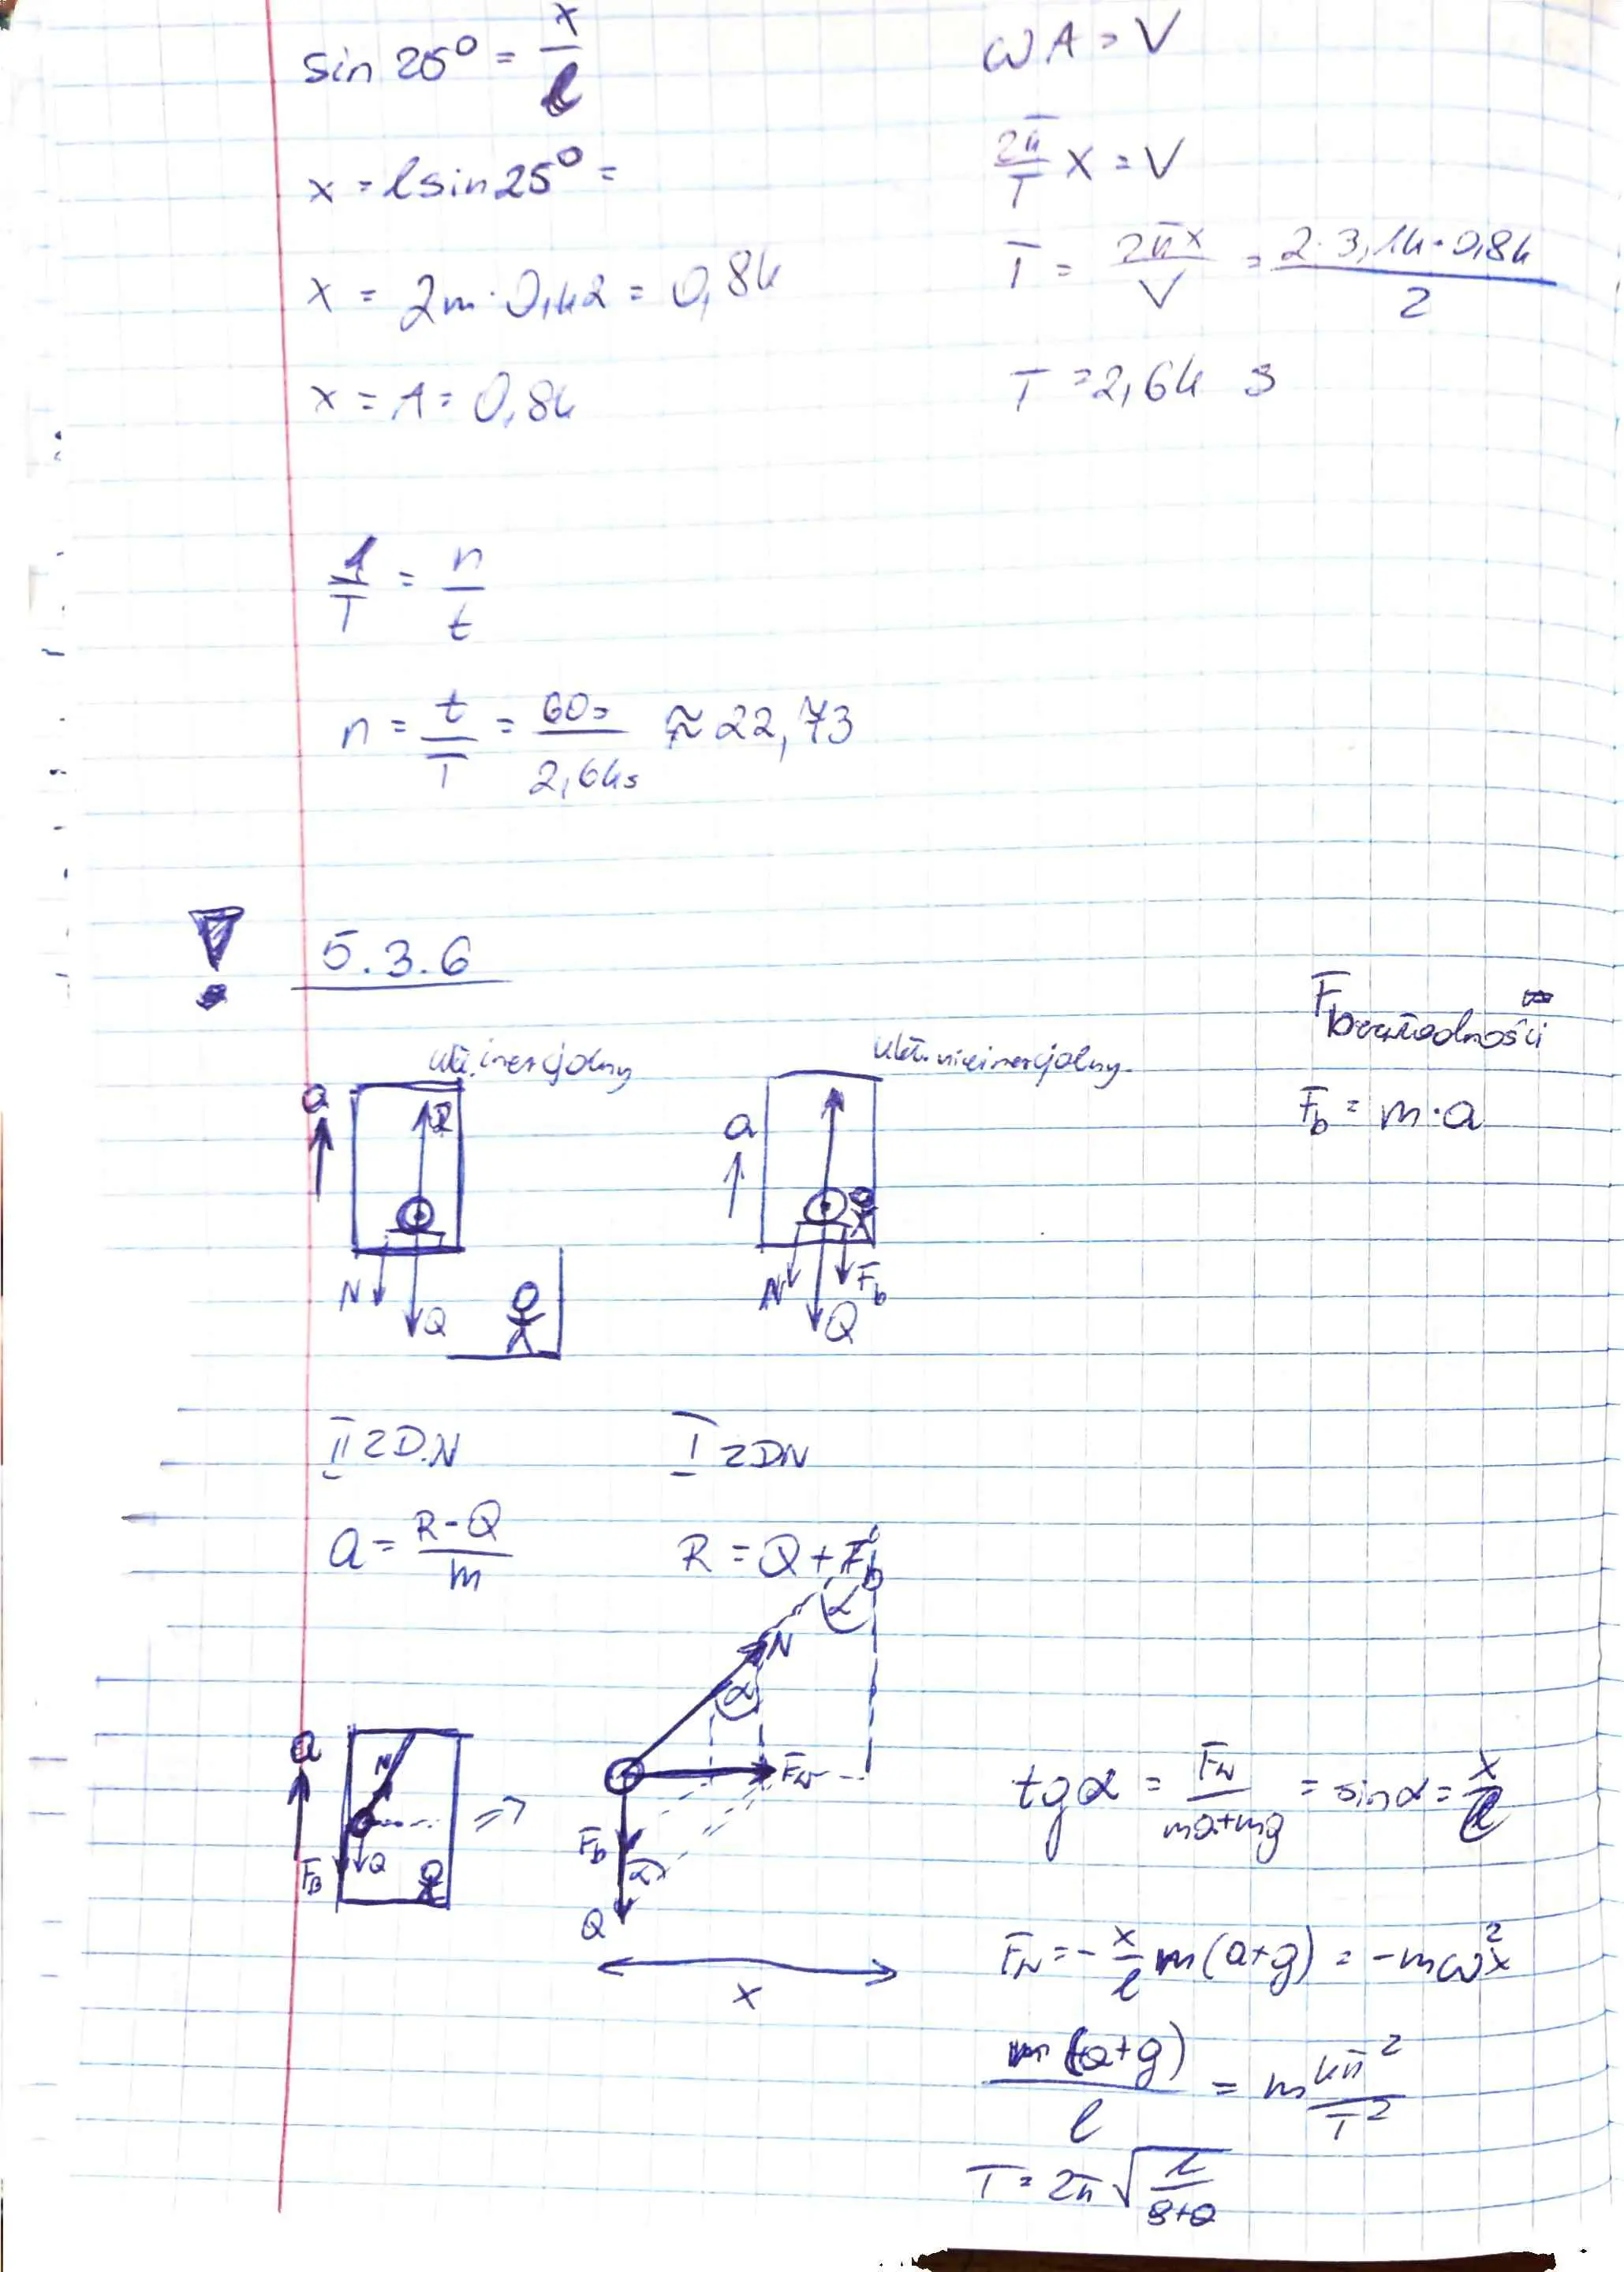 sin 25° = x/l
x = l sin 25° =
x = 2m · 0,42 = 0,84
x = A = 0,84
ωA = V
2π/T x = V
T = 2πx/V = 2·3,14·0,84/2
T = 2,64 s
1/T = n/t
n = t/T = 60s/2,64s ≈ 22,73
5.3.6
ukł. inercjalny
ukł. nieinercjalny
F bezwładności
F_b = m·a
a
R
N
Q
a
N
Q
F_b
II ZD.N
I ZDN
a = R-Q/m
R = Q + F_b
α
N
α
a
N
Q
F_B
=>
F_w
F_b
α
Q
x
tgα = F_w/ma+mg = sinα = x/l
F_w = - x/l m(a+g) = -mω²x
m(a+g)/l = m 4π²/T²
T = 2π√l/g+a